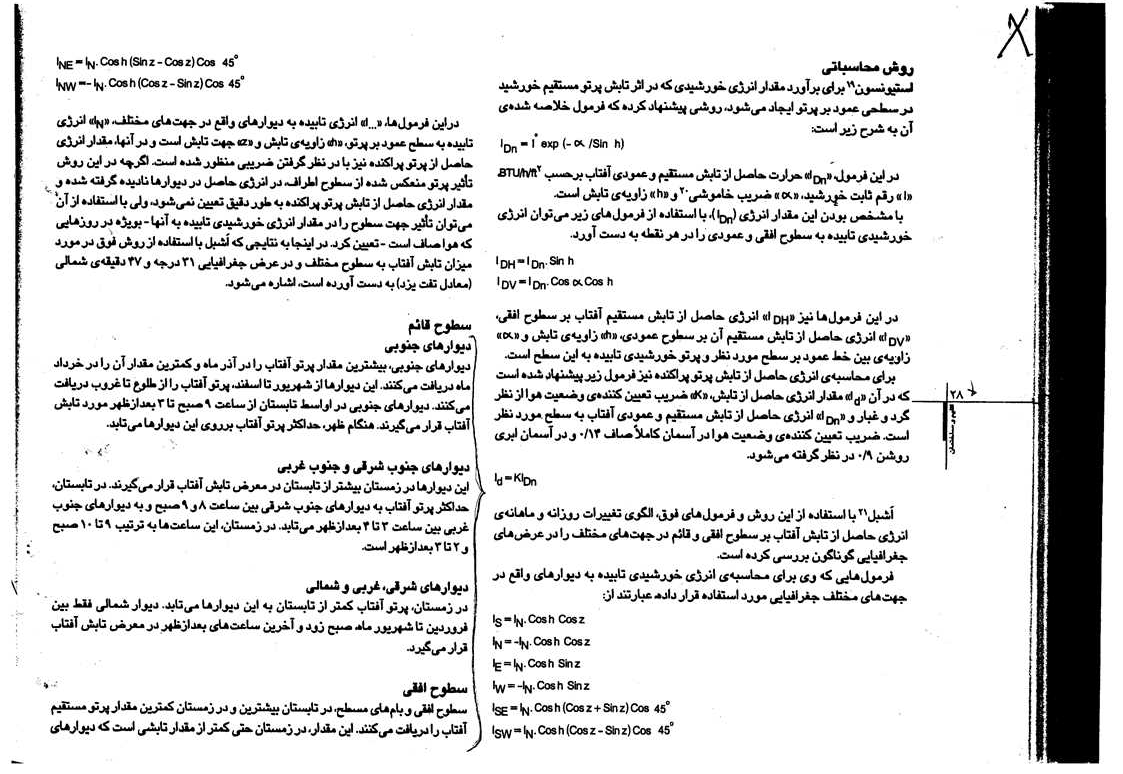 روش محاسباتی
استیونسون۱۹ برای برآورد مقدار انرژی خورشیدی که در اثر تابش پرتو مستقیم خورشید
در سطحی عمود بر پرتو ایجاد می‌شود، روشی پیشنهاد کرده که فرمول خلاصه شده‌ی
آن به شرح زیر است:
I Dn = I° exp (- ∝ /Sin h)
در این فرمول، «IDn» حرارت حاصل از تابش مستقیم و عمودی آفتاب برحسب BTU/h/ft۲،
«I» رقم ثابت خورشید، «∝» ضریب خاموشی۲۰ و «h» زاویه‌ی تابش است.
با مشخص بودن این مقدار انرژی (IDn)، با استفاده از فرمول‌های زیر می‌توان انرژی
خورشیدی تابیده به سطوح افقی و عمودی را در هر نقطه به دست آورد.
I DH = I Dn. Sin h
I DV = I Dn. Cos ∝ Cos h
در این فرمول‌ها نیز «I DH» انرژی حاصل از تابش مستقیم آفتاب بر سطوح افقی،
«I DV» انرژی حاصل از تابش مستقیم آن بر سطوح عمودی، «h» زاویه‌ی تابش و «∝»
زاویه‌ی بین خط عمود بر سطح مورد نظر و پرتو خورشیدی تابیده به این سطح است.
برای محاسبه‌ی انرژی حاصل از تابش پرتو پراکنده نیز فرمول زیر پیشنهاد شده است
که در آن «Id» مقدار انرژی حاصل از تابش، «K» ضریب تعیین کننده‌ی وضعیت هوا از نظر
گرد و غبار و «I Dn» انرژی حاصل از تابش مستقیم و عمودی آفتاب به سطح مورد نظر
است. ضریب تعیین کننده‌ی وضعیت هوا در آسمان کاملاً صاف ۰/۱۴ و در آسمان ابری
روشن ۰/۹ در نظر گرفته می‌شود.
Id = KIDn
أشبل۲۱ با استفاده از این روش و فرمول‌های فوق، الگوی تغییرات روزانه و ماهانه‌ی
انرژی حاصل از تابش آفتاب بر سطوح افقی و قائم در جهت‌های مختلف را در عرض‌های
جغرافیایی گوناگون بررسی کرده است.
فرمول‌هایی که وی برای محاسبه‌ی انرژی خورشیدی تابیده به دیوارهای واقع در
جهت‌های مختلف جغرافیایی مورد استفاده قرار داده، عبارتند از:
IS = IN. Cos h Cos z
IN = -IN. Cos h Cos z
IE = IN. Cos h Sin z
IW = -IN. Cos h Sin z
ISE = IN. Cos h (Cos z + Sin z) Cos 45°
ISW = IN. Cos h (Cos z - Sin z) Cos 45°
۲۸
INE = IN. Cos h (Sin z - Cos z) Cos 45°
INW = - IN. Cos h (Cos z - Sin z) Cos 45°
در این فرمول‌ها، «...I» انرژی تابیده به دیوارهای واقع در جهت‌های مختلف، «IN» انرژی
تابیده به سطح عمود بر پرتو، «h» زاویه‌ی تابش و «z» جهت تابش است و در آنها، مقدار انرژی
حاصل از پرتو پراکنده نیز با در نظر گرفتن ضریبی منظور شده است. اگرچه در این روش
تأثیر پرتو منعکس شده از سطوح اطراف، در انرژی حاصل در دیوارها نادیده گرفته شده و
مقدار انرژی حاصل از تابش پرتو پراکنده به طور دقیق تعیین نمی‌شود، ولی با استفاده از آن
می‌توان تأثیر جهت سطوح را در مقدار انرژی خورشیدی تابیده به آنها - بویژه در روزهایی
که هوا صاف است - تعیین کرد. در اینجا به نتایجی که أشبل با استفاده از روش فوق در مورد
میزان تابش آفتاب به سطوح مختلف و در عرض جغرافیایی ۳۱ درجه و ۴۷ دقیقه‌ی شمالی
(معادل تفت یزد) به دست آورده است، اشاره می‌شود.
سطوح قائم
دیوارهای جنوبی
دیوارهای جنوبی، بیشترین مقدار پرتو آفتاب را در آذر ماه و کمترین مقدار آن را در خرداد
ماه دریافت می‌کنند. این دیوارها از شهریور تا اسفند، پرتو آفتاب را از طلوع تا غروب دریافت
می‌کنند. دیوارهای جنوبی در اواسط تابستان از ساعت ۹ صبح تا ۳ بعدازظهر مورد تابش
آفتاب قرار می‌گیرند. هنگام ظهر، حداکثر پرتو آفتاب برروی این دیوارها می‌تابد.
دیوارهای جنوب شرقی و جنوب غربی
این دیوارها در زمستان بیشتر از تابستان در معرض تابش آفتاب قرار می‌گیرند. در تابستان،
حداکثر پرتو آفتاب به دیوارهای جنوب شرقی بین ساعت ۸ و ۹ صبح و به دیوارهای جنوب
غربی بین ساعت ۳ تا ۴ بعدازظهر می‌تابد. در زمستان، این ساعت‌ها به ترتیب ۹ تا ۱۰ صبح
و ۲ تا ۳ بعدازظهر است.
دیوارهای شرقی، غربی و شمالی
در زمستان، پرتو آفتاب کمتر از تابستان به این دیوارها می‌تابد. دیوار شمالی فقط بین
فروردین تا شهریور ماه، صبح زود و آخرین ساعت‌های بعدازظهر در معرض تابش آفتاب
قرار می‌گیرد.
سطوح افقی
سطوح افقی و بام‌های مسطح، در تابستان بیشترین و در زمستان کمترین مقدار پرتو مستقیم
آفتاب را دریافت می‌کنند. این مقدار، در زمستان حتی کمتر از مقدار تابشی است که دیوارهای